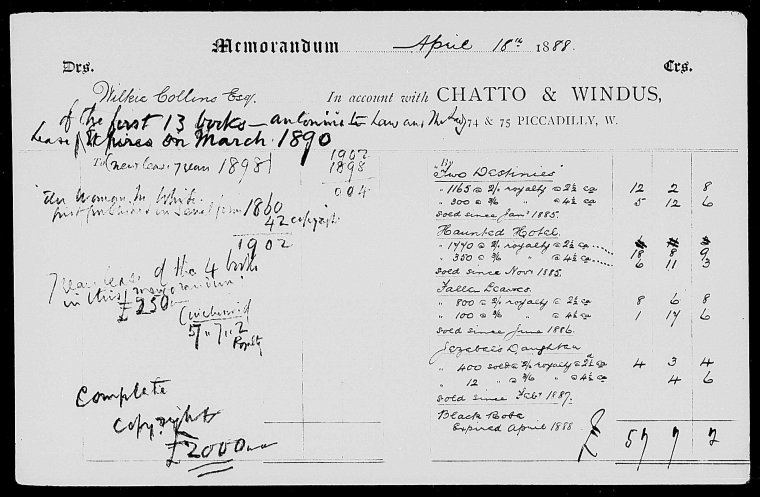 Memorandum April 18th 1888.
Drs. Crs.
Wilkie Collins Esq. In account with CHATTO & WINDUS,
of the first 13 books – and Law and the Lady 74 & 75 PICCADILLY, W.
Lease Expires on March 1890
To (new lease 7 years 1898) 1902
1898
004
The Woman in White
first published in Serial form 1860
42 copyright
1902
7 years lease of the 4 books
in this memorandum:
£250
(inclusive)
57,, 7,, 2
Royalty
Complete
Copyrights
£2000
By
Two Destinies
" 1165 @ 2/- royalty @ 2½ ea 12 2 8
" 300 @ 2/6 " @ 4½ ea 5 12 6
Sold since Jany 1885.
Haunted Hotel.
" 1770 @ 2/- royalty @ 2½ ea 18 8 9
" 350 @ 2/6 " @ 4½ ea 6 11 3
Sold since Novr 1885.
Fallen Leaves.
" 800 @ 2/- royalty @ 2½ ea 8 6 8
" 100 @ 2/6 " @ 4½ ea 1 17 6
Sold since June 1886.
Jezebel's Daughter
" 400 sold @ 2/- royalty @ 2½ ea 4 3 4
" 12 " @ 2/6 " @ 4½ ea 4 6
Sold since Feby 1887.
Black Robe
Expired April 1888
£ 57 7 2